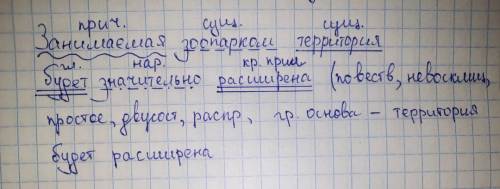 прич. сущ. сущ.
Занимаемая зоопарком территория
гл. нар. кр. прил
будет значительно расширена (повеств, невосклиц,
простое, двусост, распр, гр. основа – территория
будет расширена